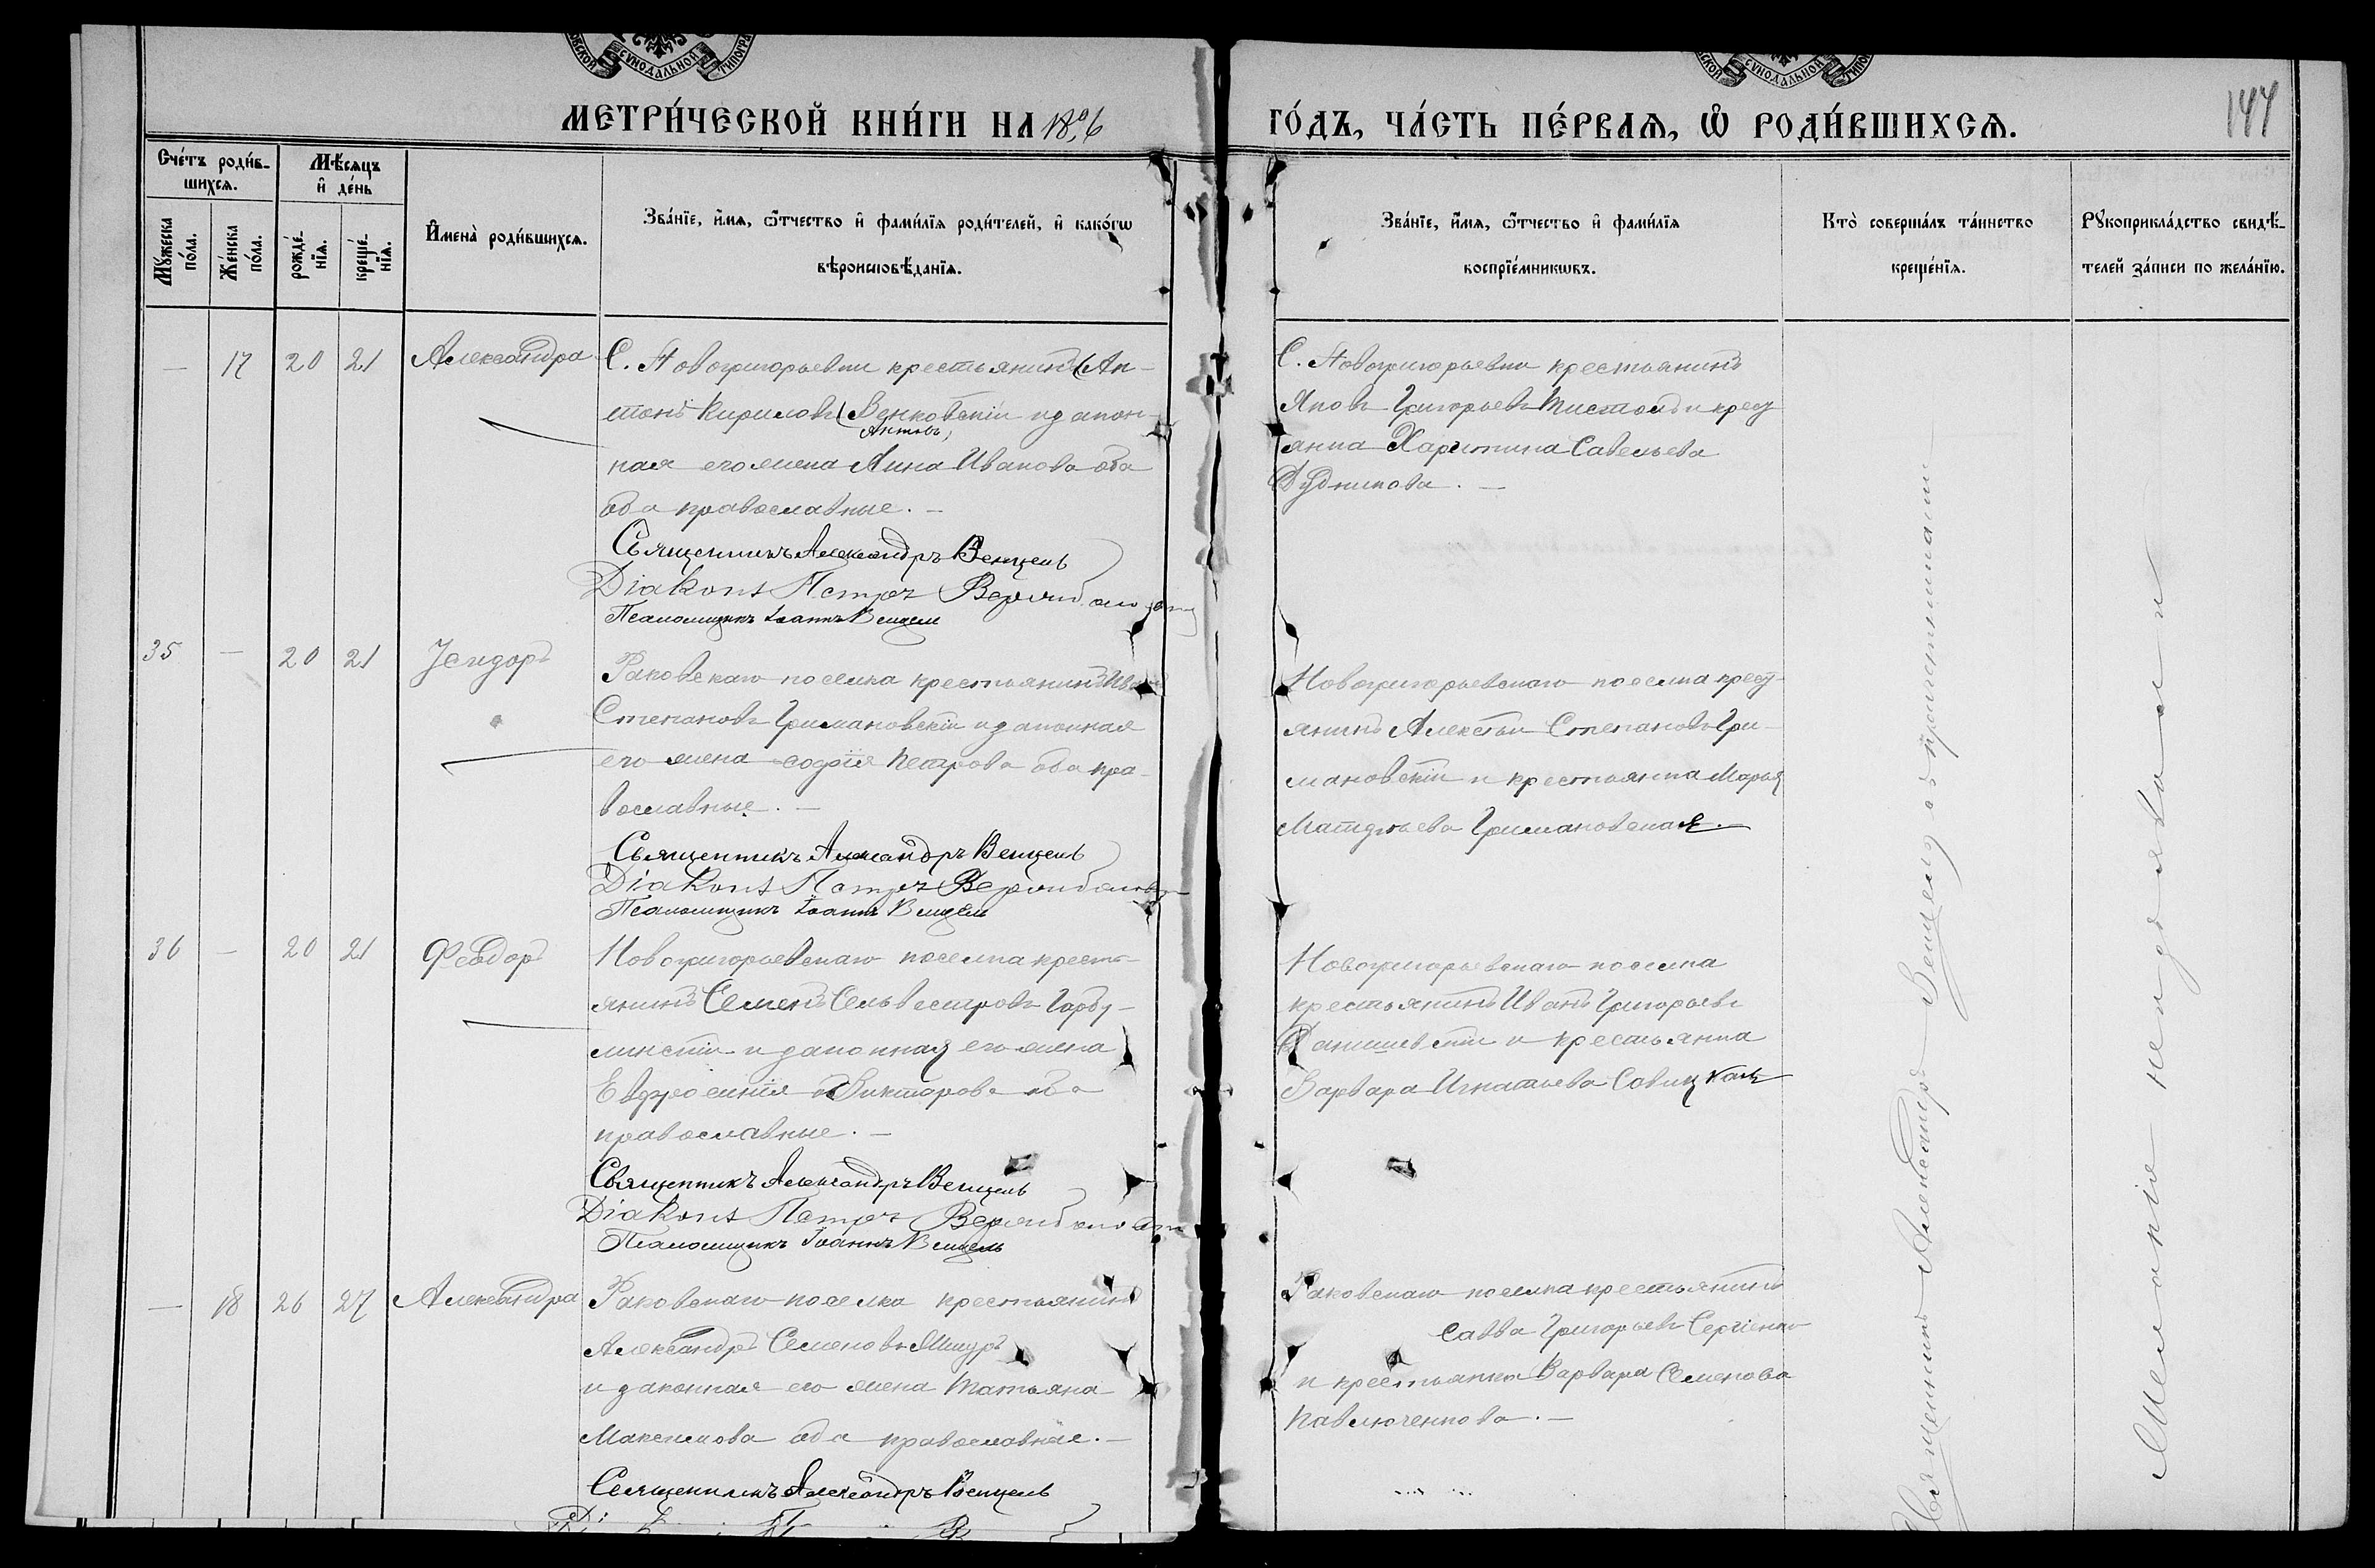 СУНОДАЛЬНОЙ
СУНОДАЛЬНОЙ
МЕТРИ́ЧЕСКОЙ КНИ́ГИ НА
ГО́ДЪ, ЧА́СТЬ ПЕ́РВАѦ, Ѽ РОДИ́ВШИХСѦ.
144
Сче́тъ роди́в-
шихсѧ.
Мѣ́сѧцъ
и҆ де́нь
Мꙋ́жеска
по́ла.
Же́нска
по́ла.
рожде́-
нїѧ.
креще́-
нїѧ.
И҆мена̀ роди́вшихсѧ.
Зва́нїе, и҆́мѧ, ѻ҆́тчество и҆ фами́лїѧ роди́телей, и҆ како́гѡ
вѣроисповѣ́данїѧ.
Зва́нїе, и҆́мѧ, ѻ҆́тчество и҆ фами́лїѧ
воспрїе́мникѡвъ.
Кто̀ соверша́лъ та́инство
креще́нїѧ.
Рꙋкоприкла́дство свидѣ́-
телей за́писи по жела́нїю.
— 17 20 21 Александра
С. Новогригорьевки крестьянинъ Ан-
тонъ Кириловъ Венковскій и закон-
ная его жена Анна Иванова оба
оба православные. —
Священникъ Александръ Венцель
Діаконъ Петръ
Псаломщикъ Іоаннъ Венцель
С. Новогригорьевки крестьянинъ
Яковъ Григорьевъ и крест
янка Харитина Савельева
Дудникова. —
35 — 20 21
Раковскаго поселка крестьянинъ
Степановъ Гримановскій и законная
его жена Софія Петрова оба пра-
вославные. —
Священникъ Александръ Венцель
Діаконъ Петръ
Псаломщикъ Іоаннъ Венцель
Новогригорьевскаго поселка крест
янинъ Алексѣй Степановъ Гри-
мановскій и крестьянка Марья
Матфѣева Гримановская. —
36 — 20 21 Феодоръ
Новогригорьевскаго поселка кресть-
янинъ Семенъ Сельвестровъ
и законная его жена
Евфросинія Викторова оба
православные. —
Священникъ Александръ Венцель
Діаконъ Петръ
Псаломщикъ Іоаннъ Венцель
Новогригорьевскаго поселка
крестьянинъ Иванъ Григорьевъ
и крестьянка
Варвара Игнатьева Савицкая
— 18 26 27 Александра
Раковскаго поселка крестьянинъ
Александръ Семеновъ
и законная его жена Татьяна
Максимова оба православные. —
Священникъ Александръ Венцель
Раковскаго поселка крестьянинъ
Савва Григорьевъ Сергіенко
и крестьянка Варвара Семенова
Павлюченкова. —
Священникъ Александръ Венцель съ
Желаніе не изъявали